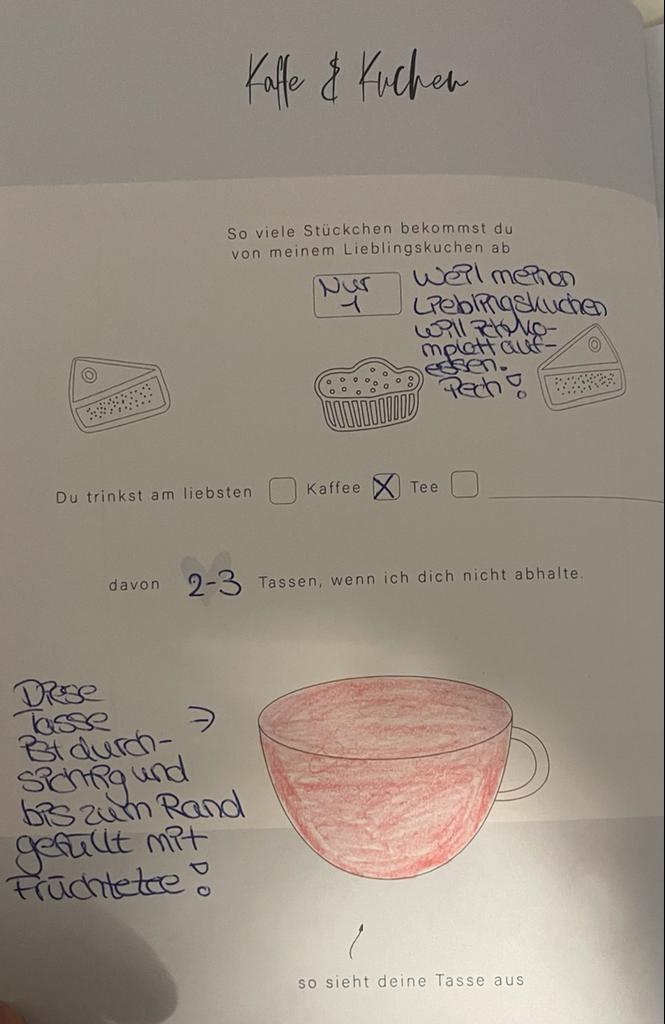 Kaffe & Kuchen
So viele Stückchen bekommst du
von meinem Lieblingskuchen ab
Nur
1
Weil meinen
Lieblingskuchen
will ich ko-
mplett auf-
essen.
Pech!
Du trinkst am liebsten Kaffee X Tee
davon 2-3 Tassen, wenn ich dich nicht abhalte.
Diese
Tasse →
ist durch-
sichtig und
bis zum Rand
gefüllt mit
Früchtetee!
so sieht deine Tasse aus